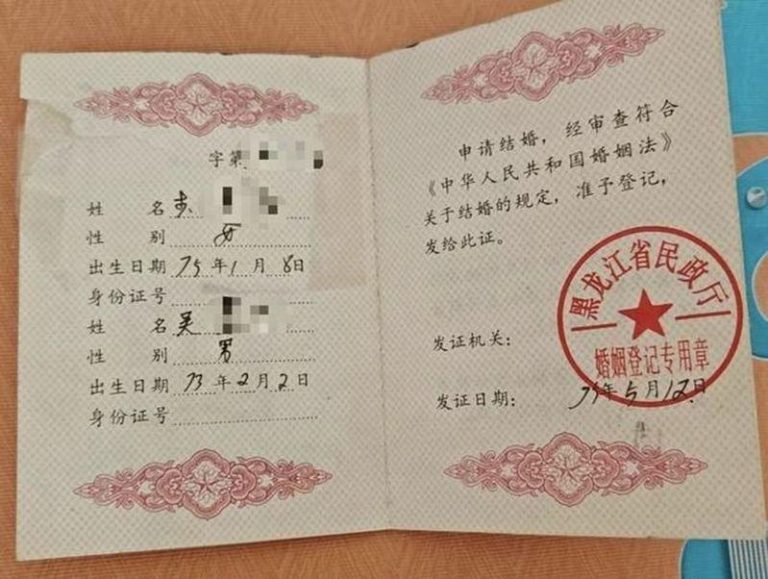 字第
姓 名
性 别 女
出生日期 75年1月8日
身份证号
姓 名 吴
性 别 男
出生日期 73年2月2日
身份证号
申请结婚，经审查符合
《中华人民共和国婚姻法》
关于结婚的规定，准予登记，
发给此证。
黑龙江省民政厅
婚姻登记专用章
发证机关：
发证日期： 年5月12日